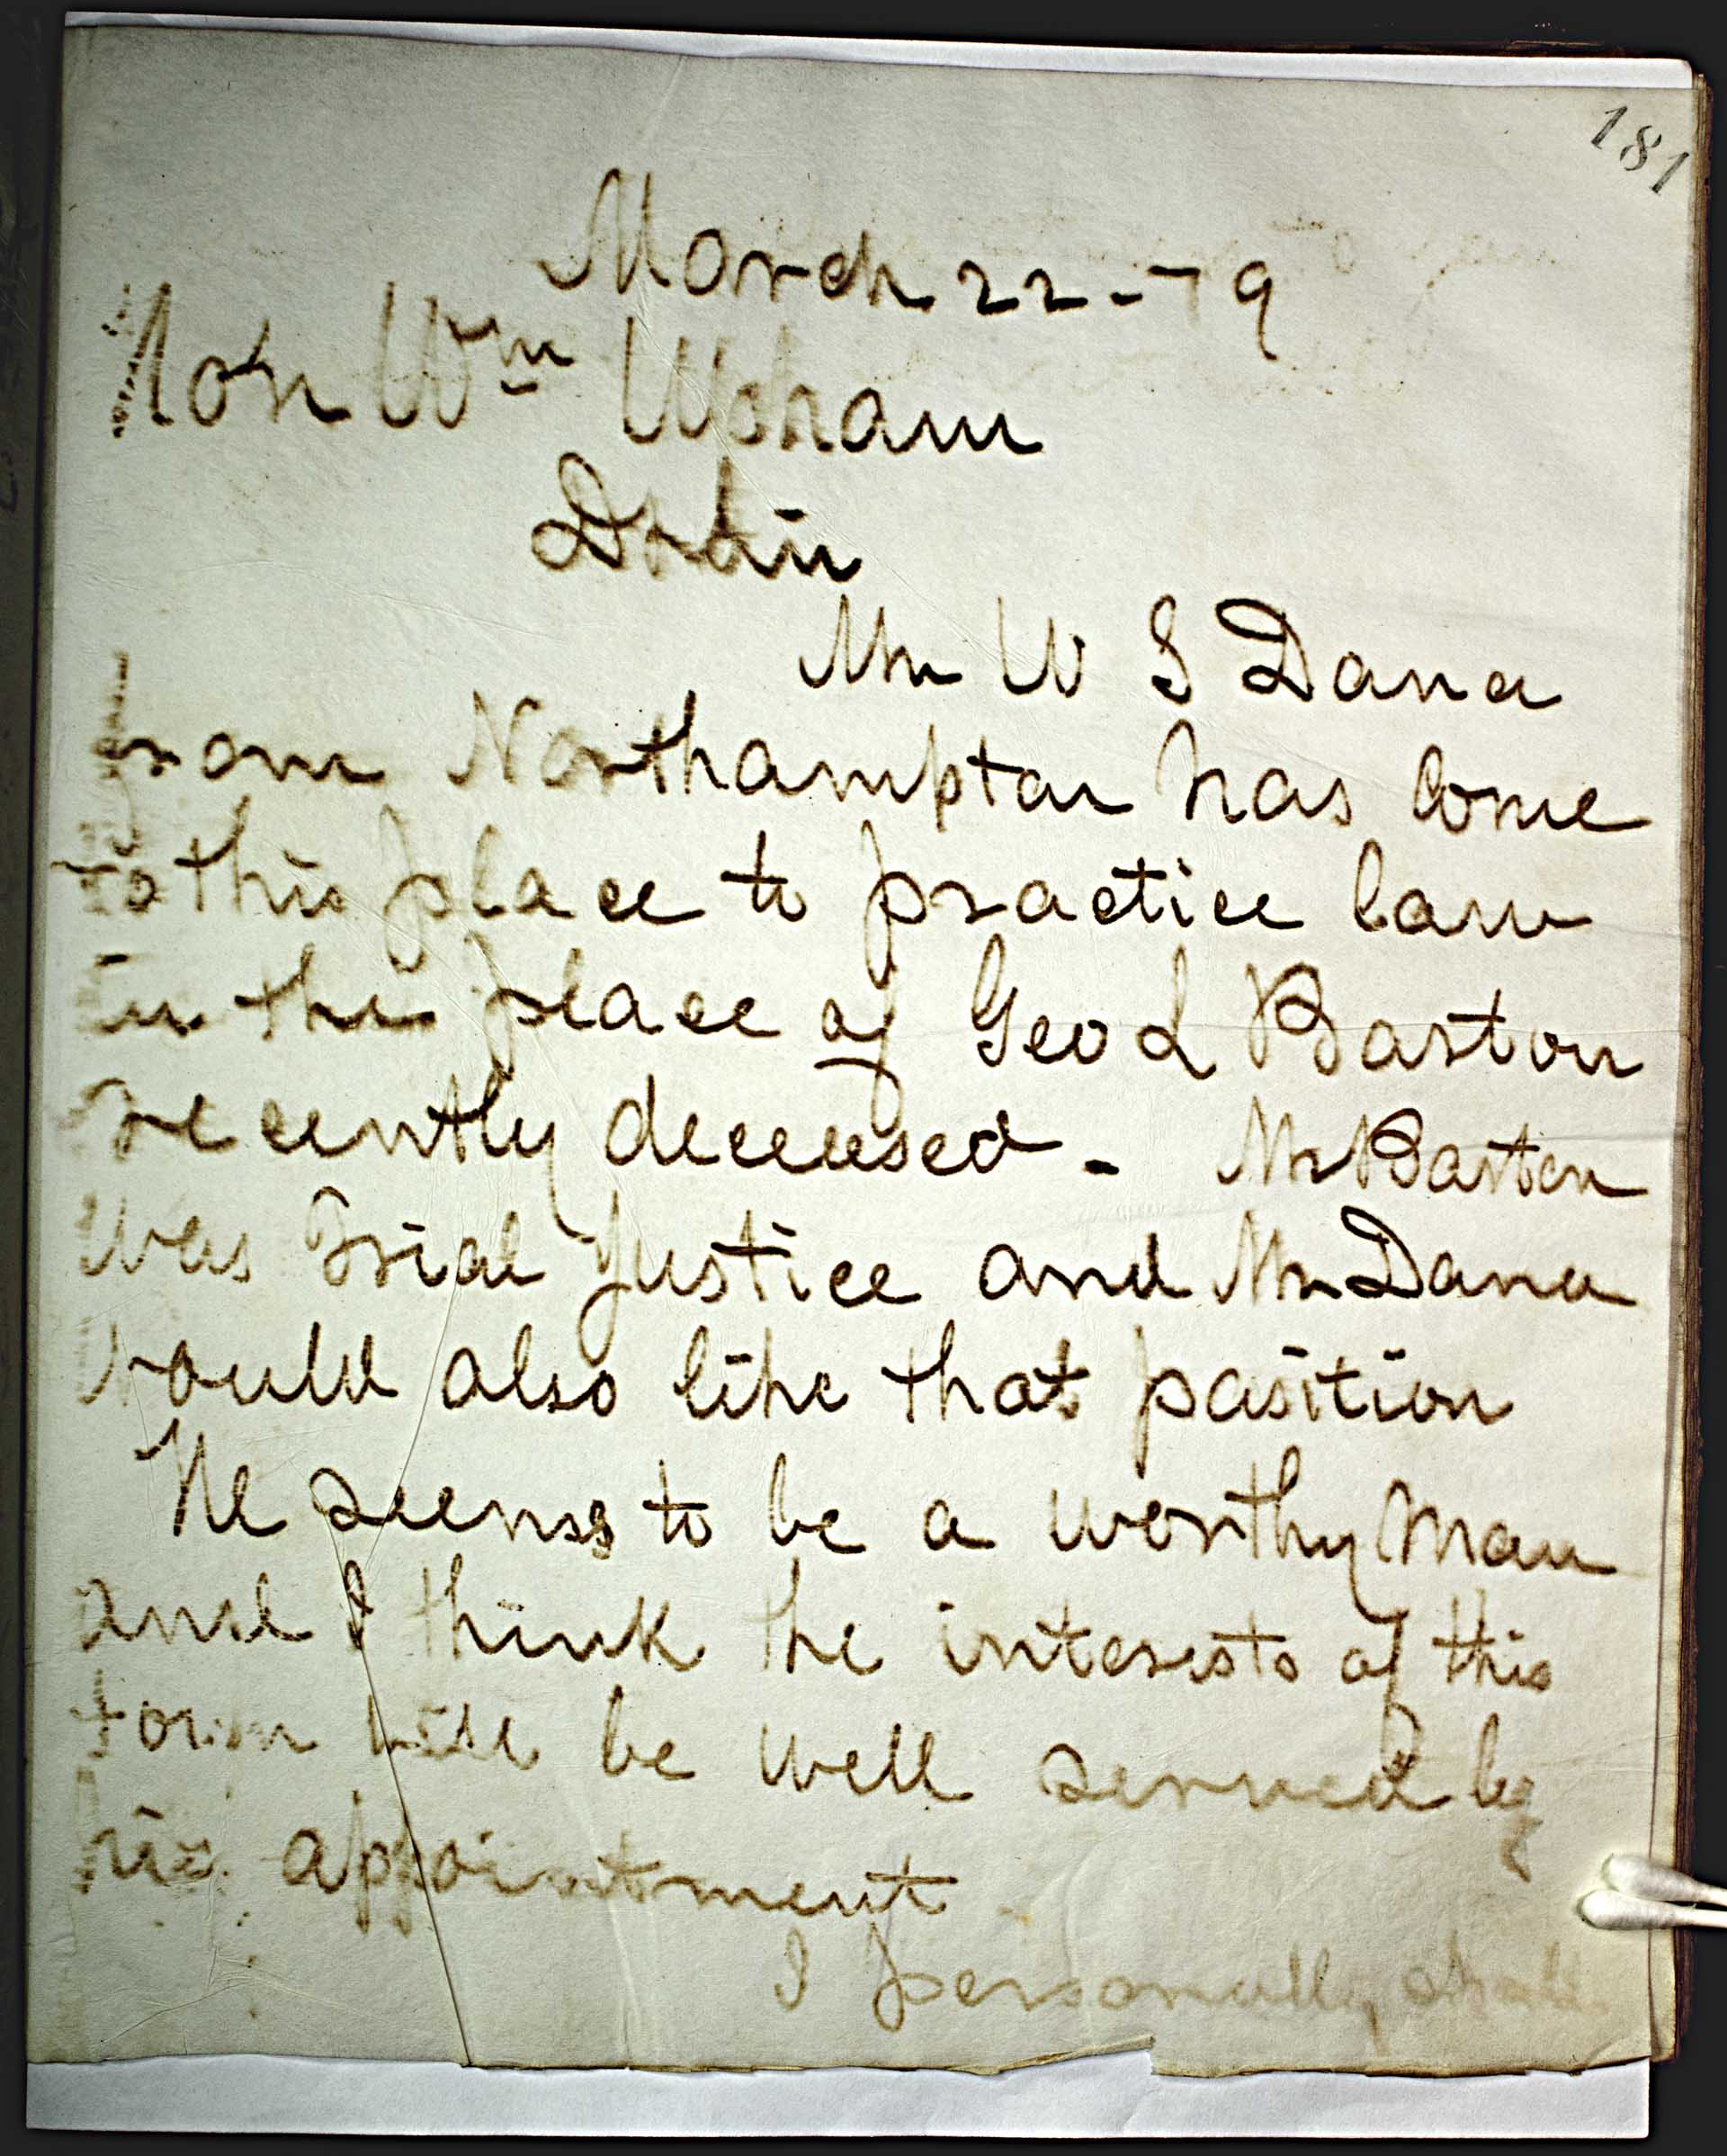 181
March 22 - 79
Hon Wm Upham
Dr Sir
Mr W S Dana
from Northampton has come
to this place to practice law
in the place of Geo L Barton
recently deceased - Mr Barton
was Trial Justice and Mr Dana
would also like that position
He seems to be a worthy man
and I think the interests of this
town will be well served by
his appointment
I personally shall